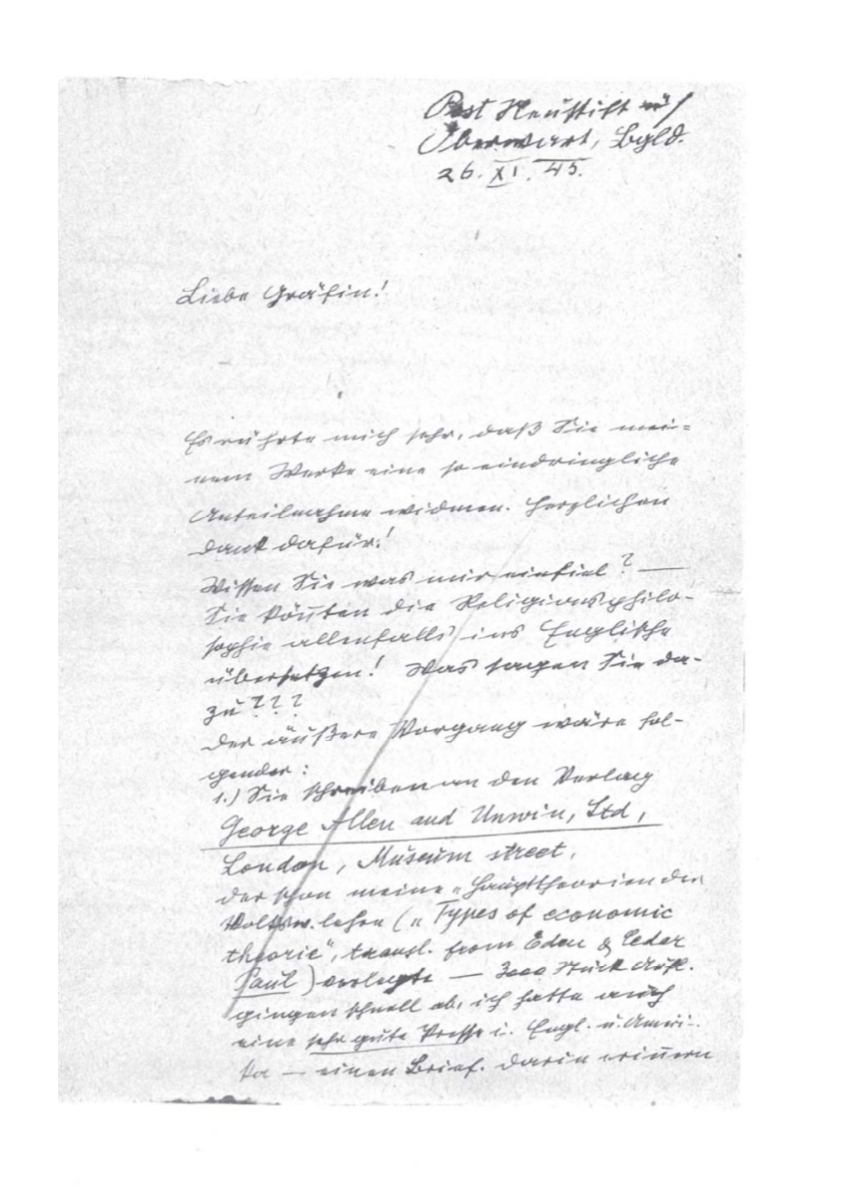 Post Neustift
Oberwart, Bgld.
26. XI. 45.
Liebe Gräfin!
Es rührte mich sehr, daß Sie mei=
nem Werke eine so eindringliche
Anteilnahme widmen. Herzlichen
Dank dafür!
Wissen Sie was mir einfiel? —
Sie könnten die Religionsphilo-
sophie allenfalls ins Englische
übersetzen! Was sagen Sie da-
zu???
Der äußere Vorgang wäre fol-
gender:
1.) Sie schreiben an den Verlag
George Allen and Unwin, Ltd,
London, Museum street,
der schon meine „Haupttheorien der
Volksw.lehre („Types of economic
theorie“, transl. from Eden & Cedar
Paul) verlegte — 3000 Stück Aufl.
gingen schnell ab, ich hatte auch
eine sehr gute Presse i. Engl. u. Ameri-
ka — einen Brief. Darin erinnern